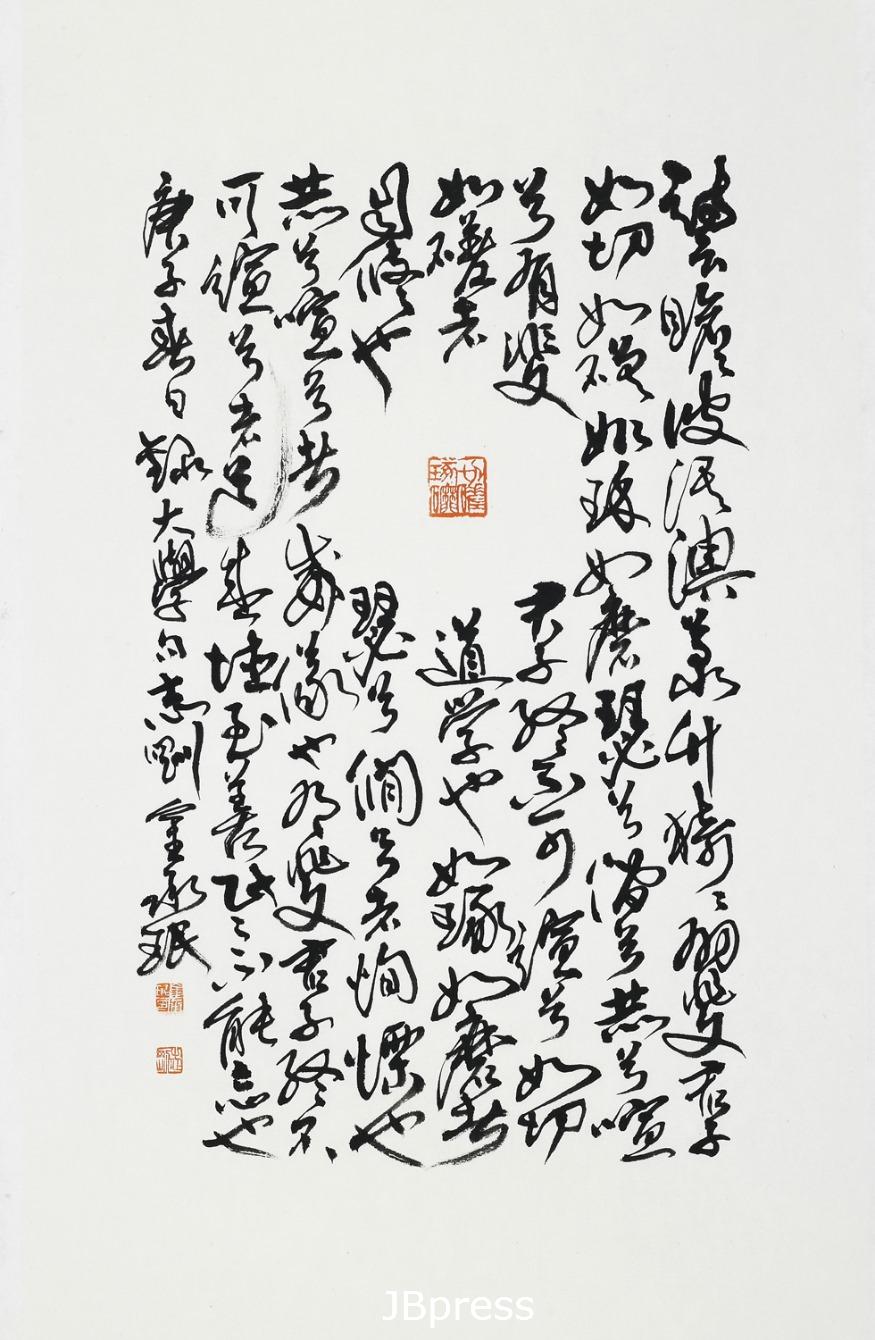 詩云瞻彼淇澳菉竹猗〻有斐君子
如切如磋如琢如磨瑟兮僩兮赫兮喧
兮有斐君子終不可諠兮如切
如磋者道学也如琢如磨者
自修也瑟兮僩兮者恂慄也
赫兮喧兮者威儀也有斐君子終不
可諠兮者道盛德至善民之不能忘也
庚子春日錄大學句志剛金承珉
JBpress